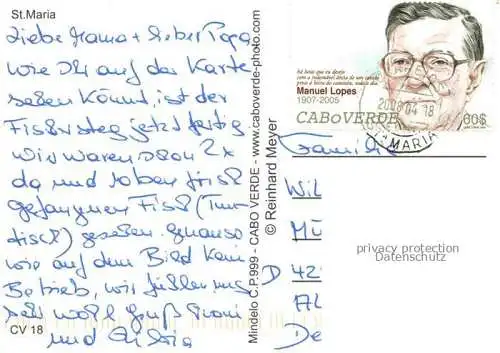 St.Maria
Liebe Mama + lieber Papa,
wie Ihr auf der Karte
sehen könnt, ist der
Fischsteg jetzt fertig.
Wir waren schon 2x
da und haben frisch
gefangenen Fisch (Thun-
fisch) gesehen. Genauso
wie auf dem Bild. Kein
Betrieb, wir fühlen uns
sehr wohl. Gruß
und
CV 18
Mindelo C.P.999 - CABO VERDE - www.caboverde-photo.com
© Reinhard Meyer
há horas que eu desejo
Manuel Lopes
1907-2005
CABOVERDE
60$
2008 04 18
MARIA
Familie
Wil
Mü
D 42
Al
De
privacy protection
Datenschutz